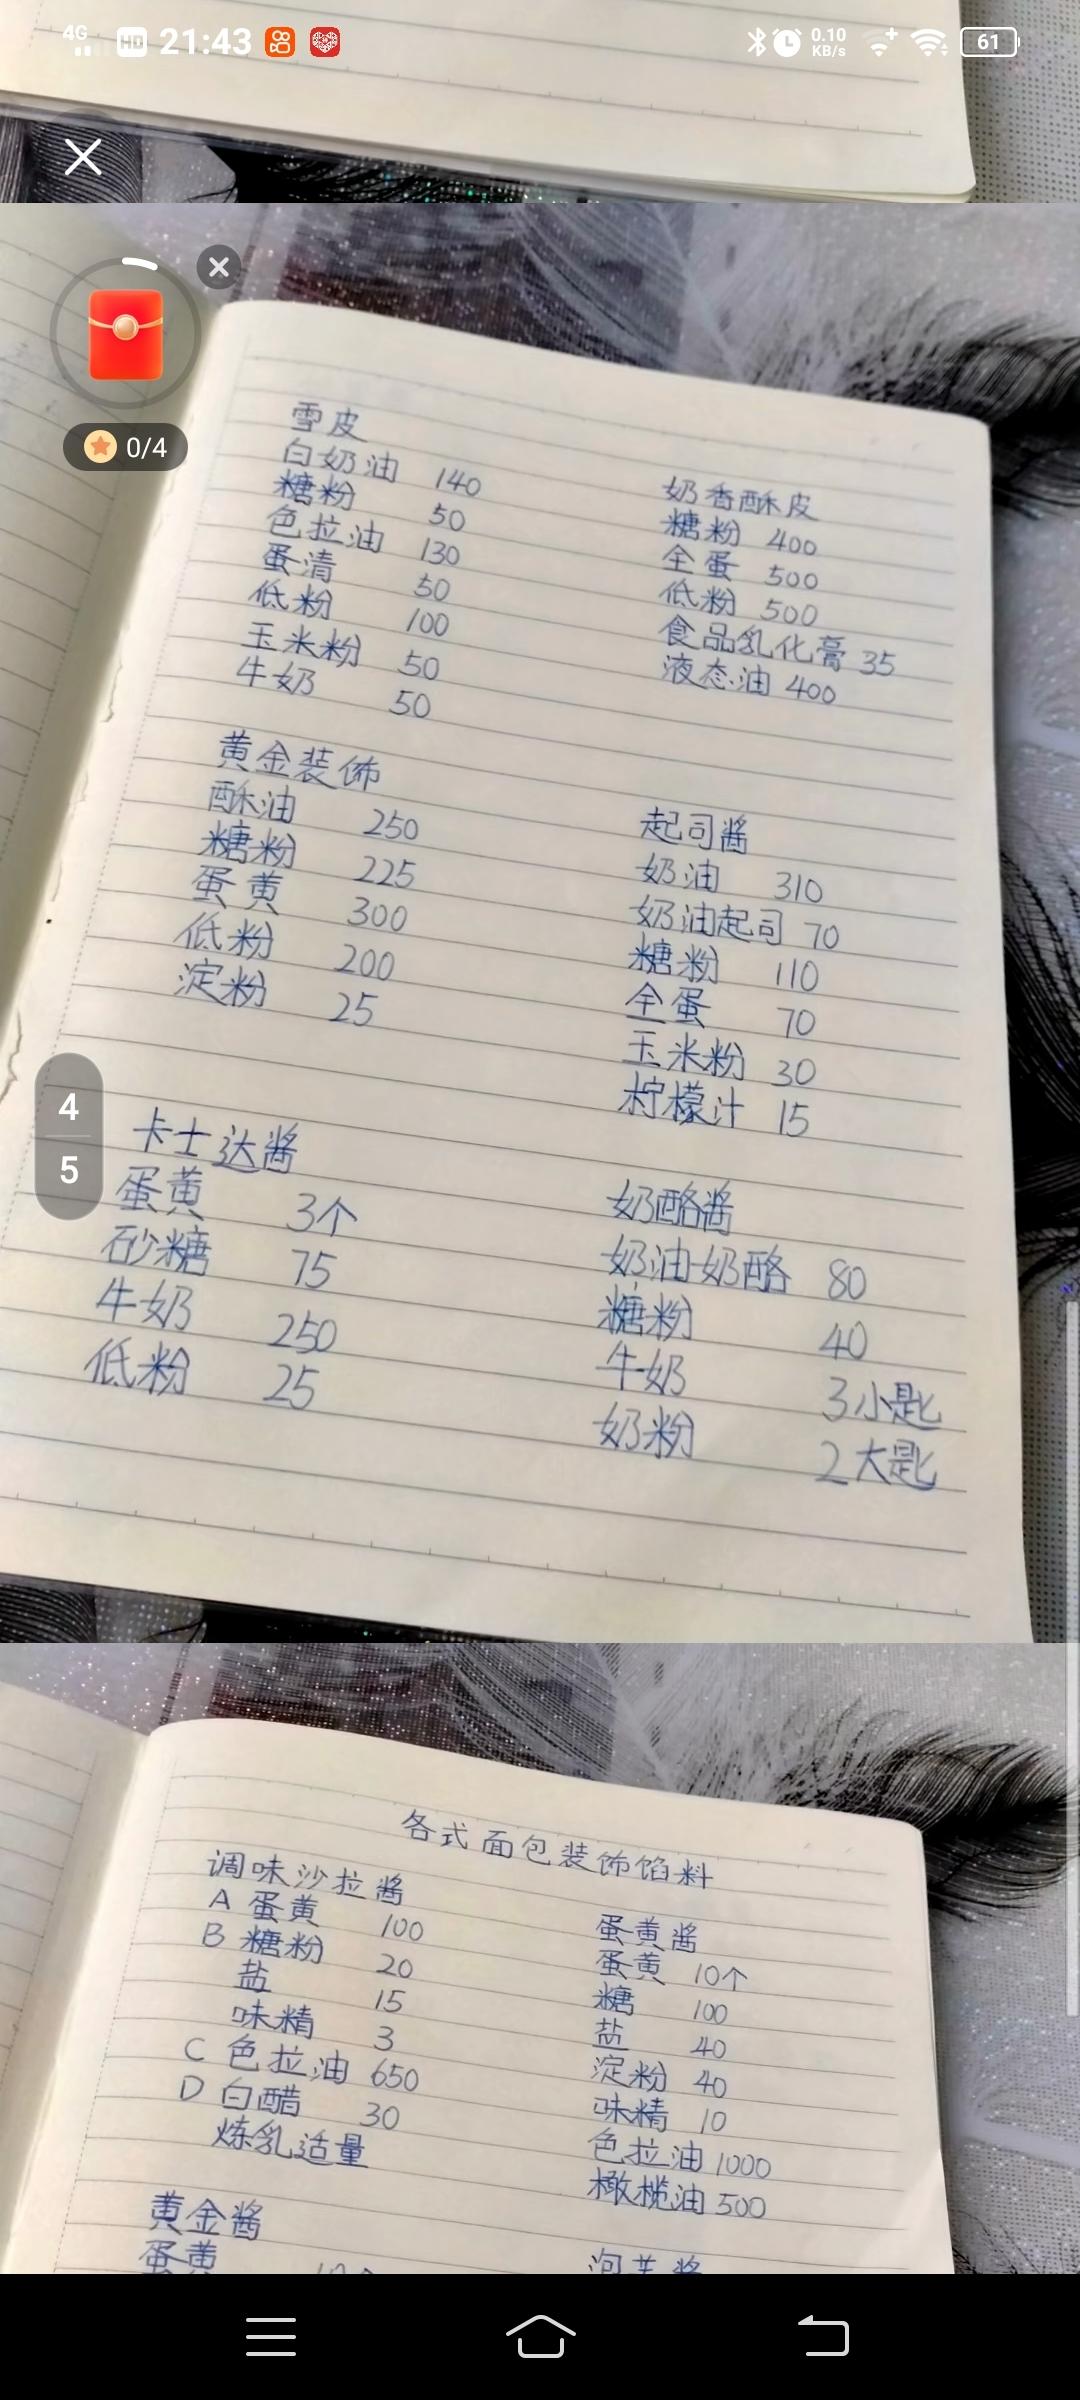 4G HD 21:43 0.10 KB/s 61
0/4
雪皮
白奶油 140
糖粉 50
色拉油 130
蛋清 50
低粉 100
玉米粉 50
牛奶 50
奶香酥皮
糖粉 400
全蛋 500
低粉 500
食品乳化膏 35
液态油 400
黄金装饰
酥油 250
糖粉 225
蛋黄 300
低粉 200
淀粉 25
起司酱
奶油 310
奶油起司 70
糖粉 110
全蛋 70
玉米粉 30
柠檬汁 15
4
5
卡士达酱
蛋黄 3个
砂糖 75
牛奶 250
低粉 25
奶酪酱
奶油奶酪 80
糖粉 40
牛奶 3小匙
奶粉 2大匙
各式面包装饰馅料
调味沙拉酱
A 蛋黄 100
B 糖粉 20
盐 15
味精 3
C 色拉油 650
D 白醋 30
炼乳适量
蛋黄酱
蛋黄 10个
糖 100
盐 40
淀粉 40
味精 10
色拉油 1000
橄榄油 500
黄金酱
蛋黄